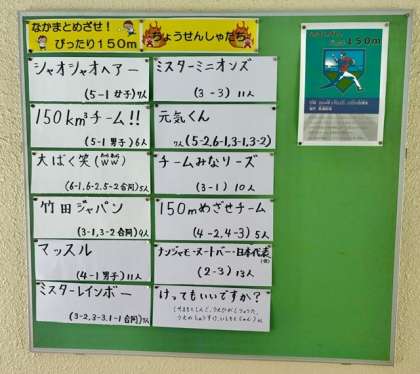 なかまとめざせ！
ぴったり150m
ちょうせんしゃたち
シャオシャオヘアー
(5-1 女子)7人
150km²チーム!!
(5-1 男子)6人
大ばく笑(ww)
(6-1,6-2,5-2合同)5人
竹田ジャパン
(3-1,3-2合同)9人
マッスル
(4-1 男子)11人
ミスターレインボー
(3-2,3-3,1-1合同)7人
ミスターミニオンズ
(3-3) 11人
元気くん
7人(5-2,6-1,3-1,3-2)
チームみなリーズ
(3-1) 10人
150mめざせチーム
(4-2,4-3)5人
ナンジャモ・ヌートバー・日本代表
(2-3) 13人
けってもいいですか？
150m